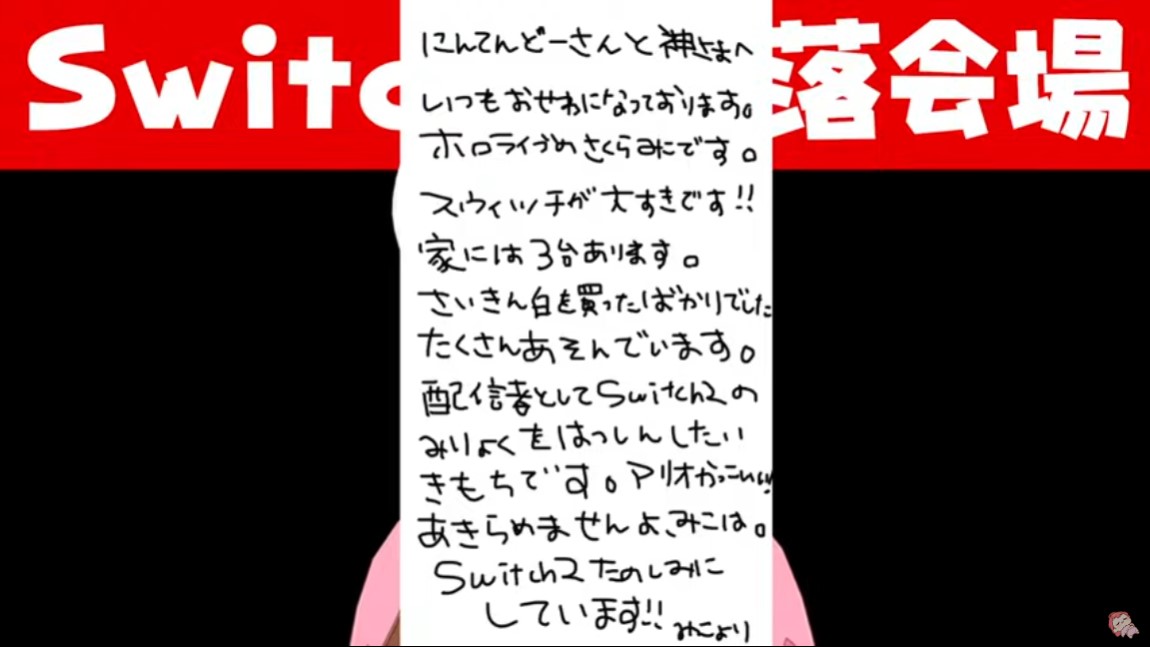 Switc
落会場
にんてんどーさんと神さまへ
いつもおせわになっております。
ホロライブのさくらみこです。
スウィッチが大すきです!!
家には3台あります。
さいきん白を買ったばかりでした
たくさんあそんでいます。
配信者としてSwitch2の
みりょくをはっしんしたい
きもちです。マリオかっこいい!
あきらめませんよ、みこは。
Switch2たのしみに
しています!!
みこより